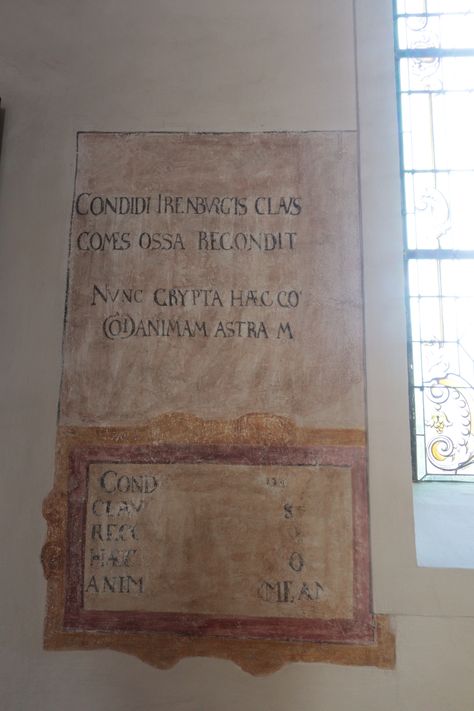 CONDIDI IRENBVRGIS CLAVS
COMES OSSA RECONDIT
NVNC CRYPTA HÆC CO
ANIMAM ASTRA M
COND
CLAV S
RECO
HÆC O
ANIM MEAN